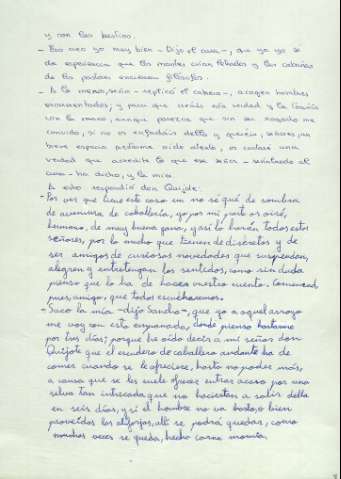 y son les bestias.
- Eso creo yo muy bien - Dijo el cura -, que ya yo sé
de esperiencia que los montes crían letrados y las cabañas
de los pastores encierran filósofos.
- A lo menos, señor - replicó el cabrero -, acogen hombres
escarmentados; y para que creáis esta verdad y la toquéis
con la mano, aunque parezca que sin ser rogado me
convido, si no os enfadáis dello y queréis, señores, un
breve espacio prestarme oído atento, os contaré una
verdad que acredite lo que ese señor - señalando al
cura - ha dicho, y la mía.
A esto respondió don Quijote:
- Por ver que tiene este caso un no sé qué de sombra
de aventura de caballería, yo, por mi parte, os oiré,
hermano, de muy buena gana, y así lo harán todos estos
señores, por lo mucho que tienen de discretos y de
ser amigos de curiosas novedades que suspendan,
alegren y entretengan los sentidos, como sin duda
pienso que lo ha de hacer vuestro cuento. Comenzad,
pues, amigo, que todos escucharemos.
- Saco la mía - dijo Sancho -, que yo a aquel arroyo
me voy con esta empanada, donde pienso hartarme
por tres días; porque he oído decir a mi señor don
Quijote que el escudero de caballero andante ha de
comer cuando se le ofreciere, hasta no poder más,
a causa que se les suele ofrecer entrar acaso por una
selva tan intricada que no aciertan a salir della
en seis días, y si el hombre no va harto, o bien
proveídas las alforjas, allí se podrá quedar, como
muchas veces se queda, hecho carne momia.